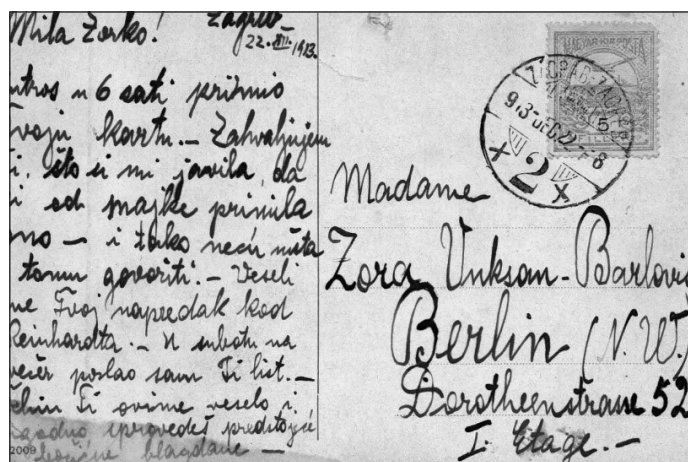 Mila Zorko!
Zagreb
22. XII. 1913.
utros u 6 sati primio
Tvoju kartu. – Zahvaljujem
i, što si mi javila, da
i od majke primila
no – i tako neću ništa
tomu govoriti. – Veseli
me Tvoj napredak kod
Reinhardta. – U subotu na
večer poslao sam Ti list. –
Želim Ti ovime veselo i
ugodno sprovedeš predstojeće
božićne blagdane –
2009
MAGYAR KIR. POSTA
5
FILLÉR
ZÁGRÁB-ZAGREB
913 DEC 22 – 8
2
Madame
Zora Vuksan-Barlović
Berlin (N.W.)
Dorotheenstrasse 52
I. Etage. –